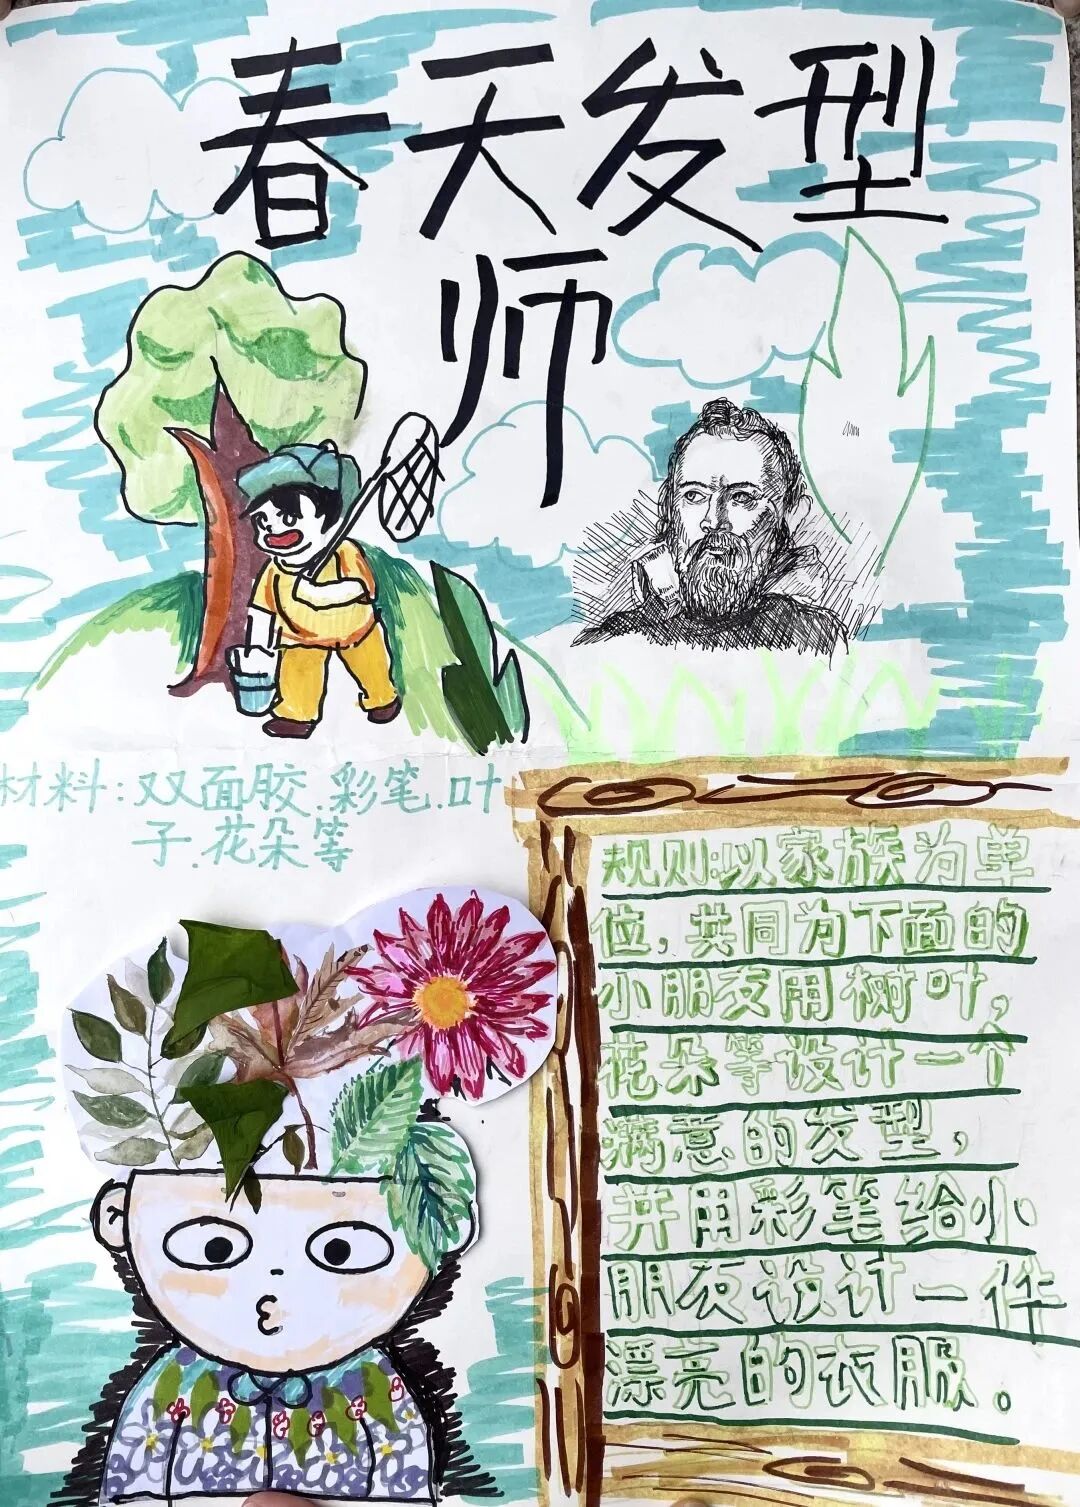 春天发型
师
材料:双面胶.彩笔.叶
子.花朵等
规则:以家族为单
位,共同为下面的
小朋友用树叶,
花朵等设计一个
满意的发型,
并用彩笔给小
朋友设计一件
漂亮的衣服。